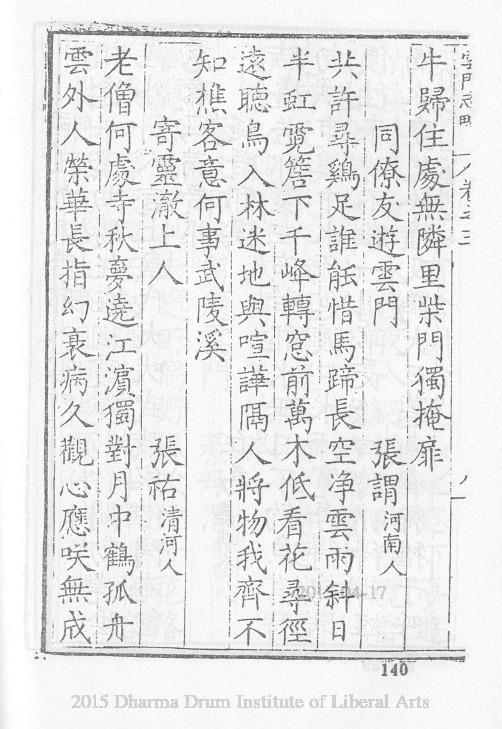 雲門志略 卷之三 八
牛歸住處無隣里柴門獨掩扉
同僚友遊雲門 張謂河南人
共許尋鷄足誰能惜馬蹄長空净雲雨斜日
半虹霓簷下千峰轉窓前萬木低看花尋徑
遠聽鳥入林迷地與喧譁隔人將物我齊不
知樵客意何事武陵溪
寄靈澈上人 張祐清河人
老僧何處寺秋夢遶江濵獨對月中鶴孤舟
雲外人榮華長指幻衰病久觀心應咲無成
2015-04-17
140
2015 Dharma Drum Institute of Liberal Arts